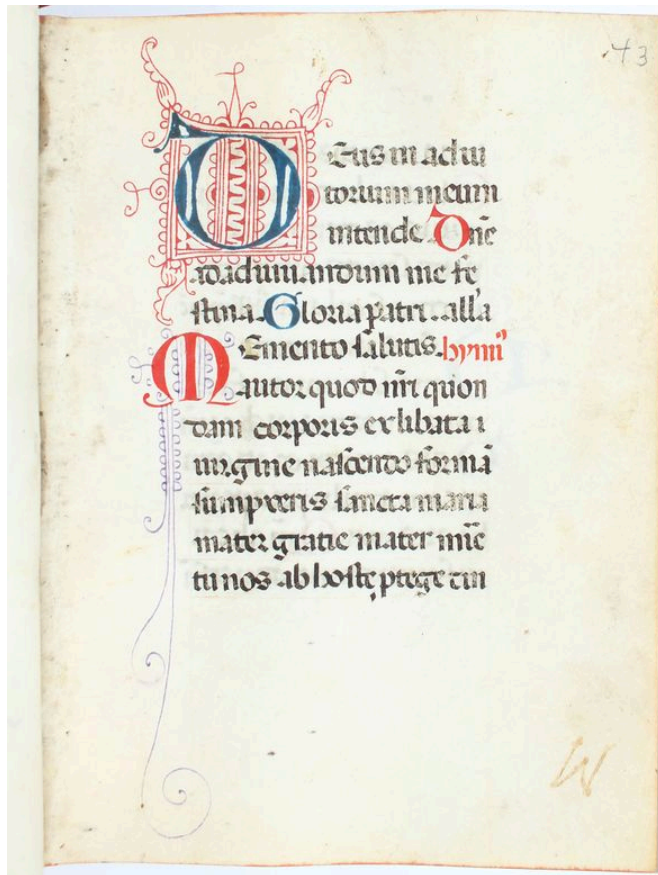 43
Deus in adiu
torium meum
intende Dn̄e
ad adiuuandum me fe
stina. Gloria patri. alla
Memento salutis. hymn̄
autor quod nr̄i quon
dam corporis ex libata i
uirgine nascendo formā
sumpseris sancta maria
mater gratie mater mīe
tu nos ab hoste ꝓtege et in